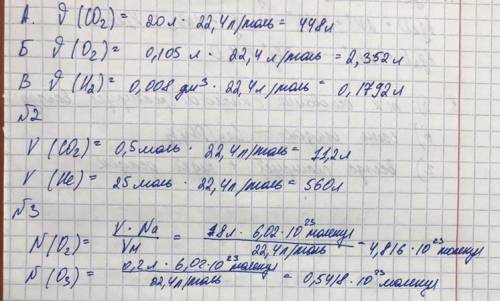 А. ϑ (CO₂) = 20 л · 22,4 л/моль = 448 л
Б ϑ (O₂) = 0,105 л · 22,4 л/моль = 2,352 л
В ϑ (H₂) = 0,008 дм³ · 22,4 л/моль = 0,1792 л
№2
V (CO₂) = 0,5 моль · 22,4 л/моль = 11,2 л
V (He) = 25 моль · 22,4 л/моль = 560 л
№3
N (O₂) = V · Na / Vм = 18 л · 6,02 · 10²³ молекул / 22,4 л/моль = 4,816 · 10²³ молекул
N (O₃) = 0,2 л · 6,02 · 10²³ молекул / 22,4 л/моль = 0,5418 · 10²³ молекул